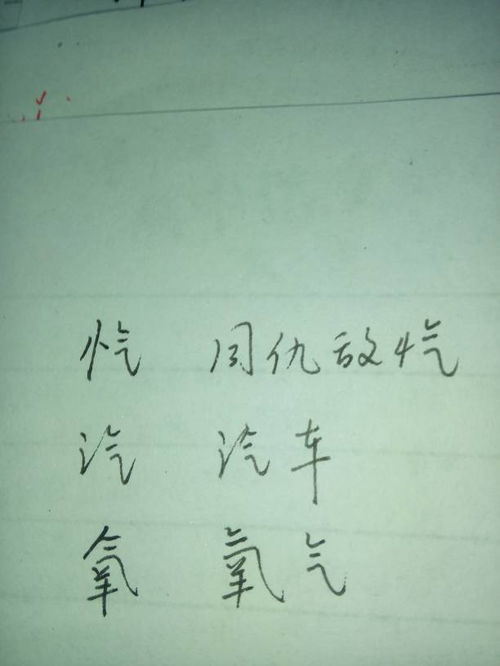 忾 同仇敌忾
汽 汽车
氧 氧气